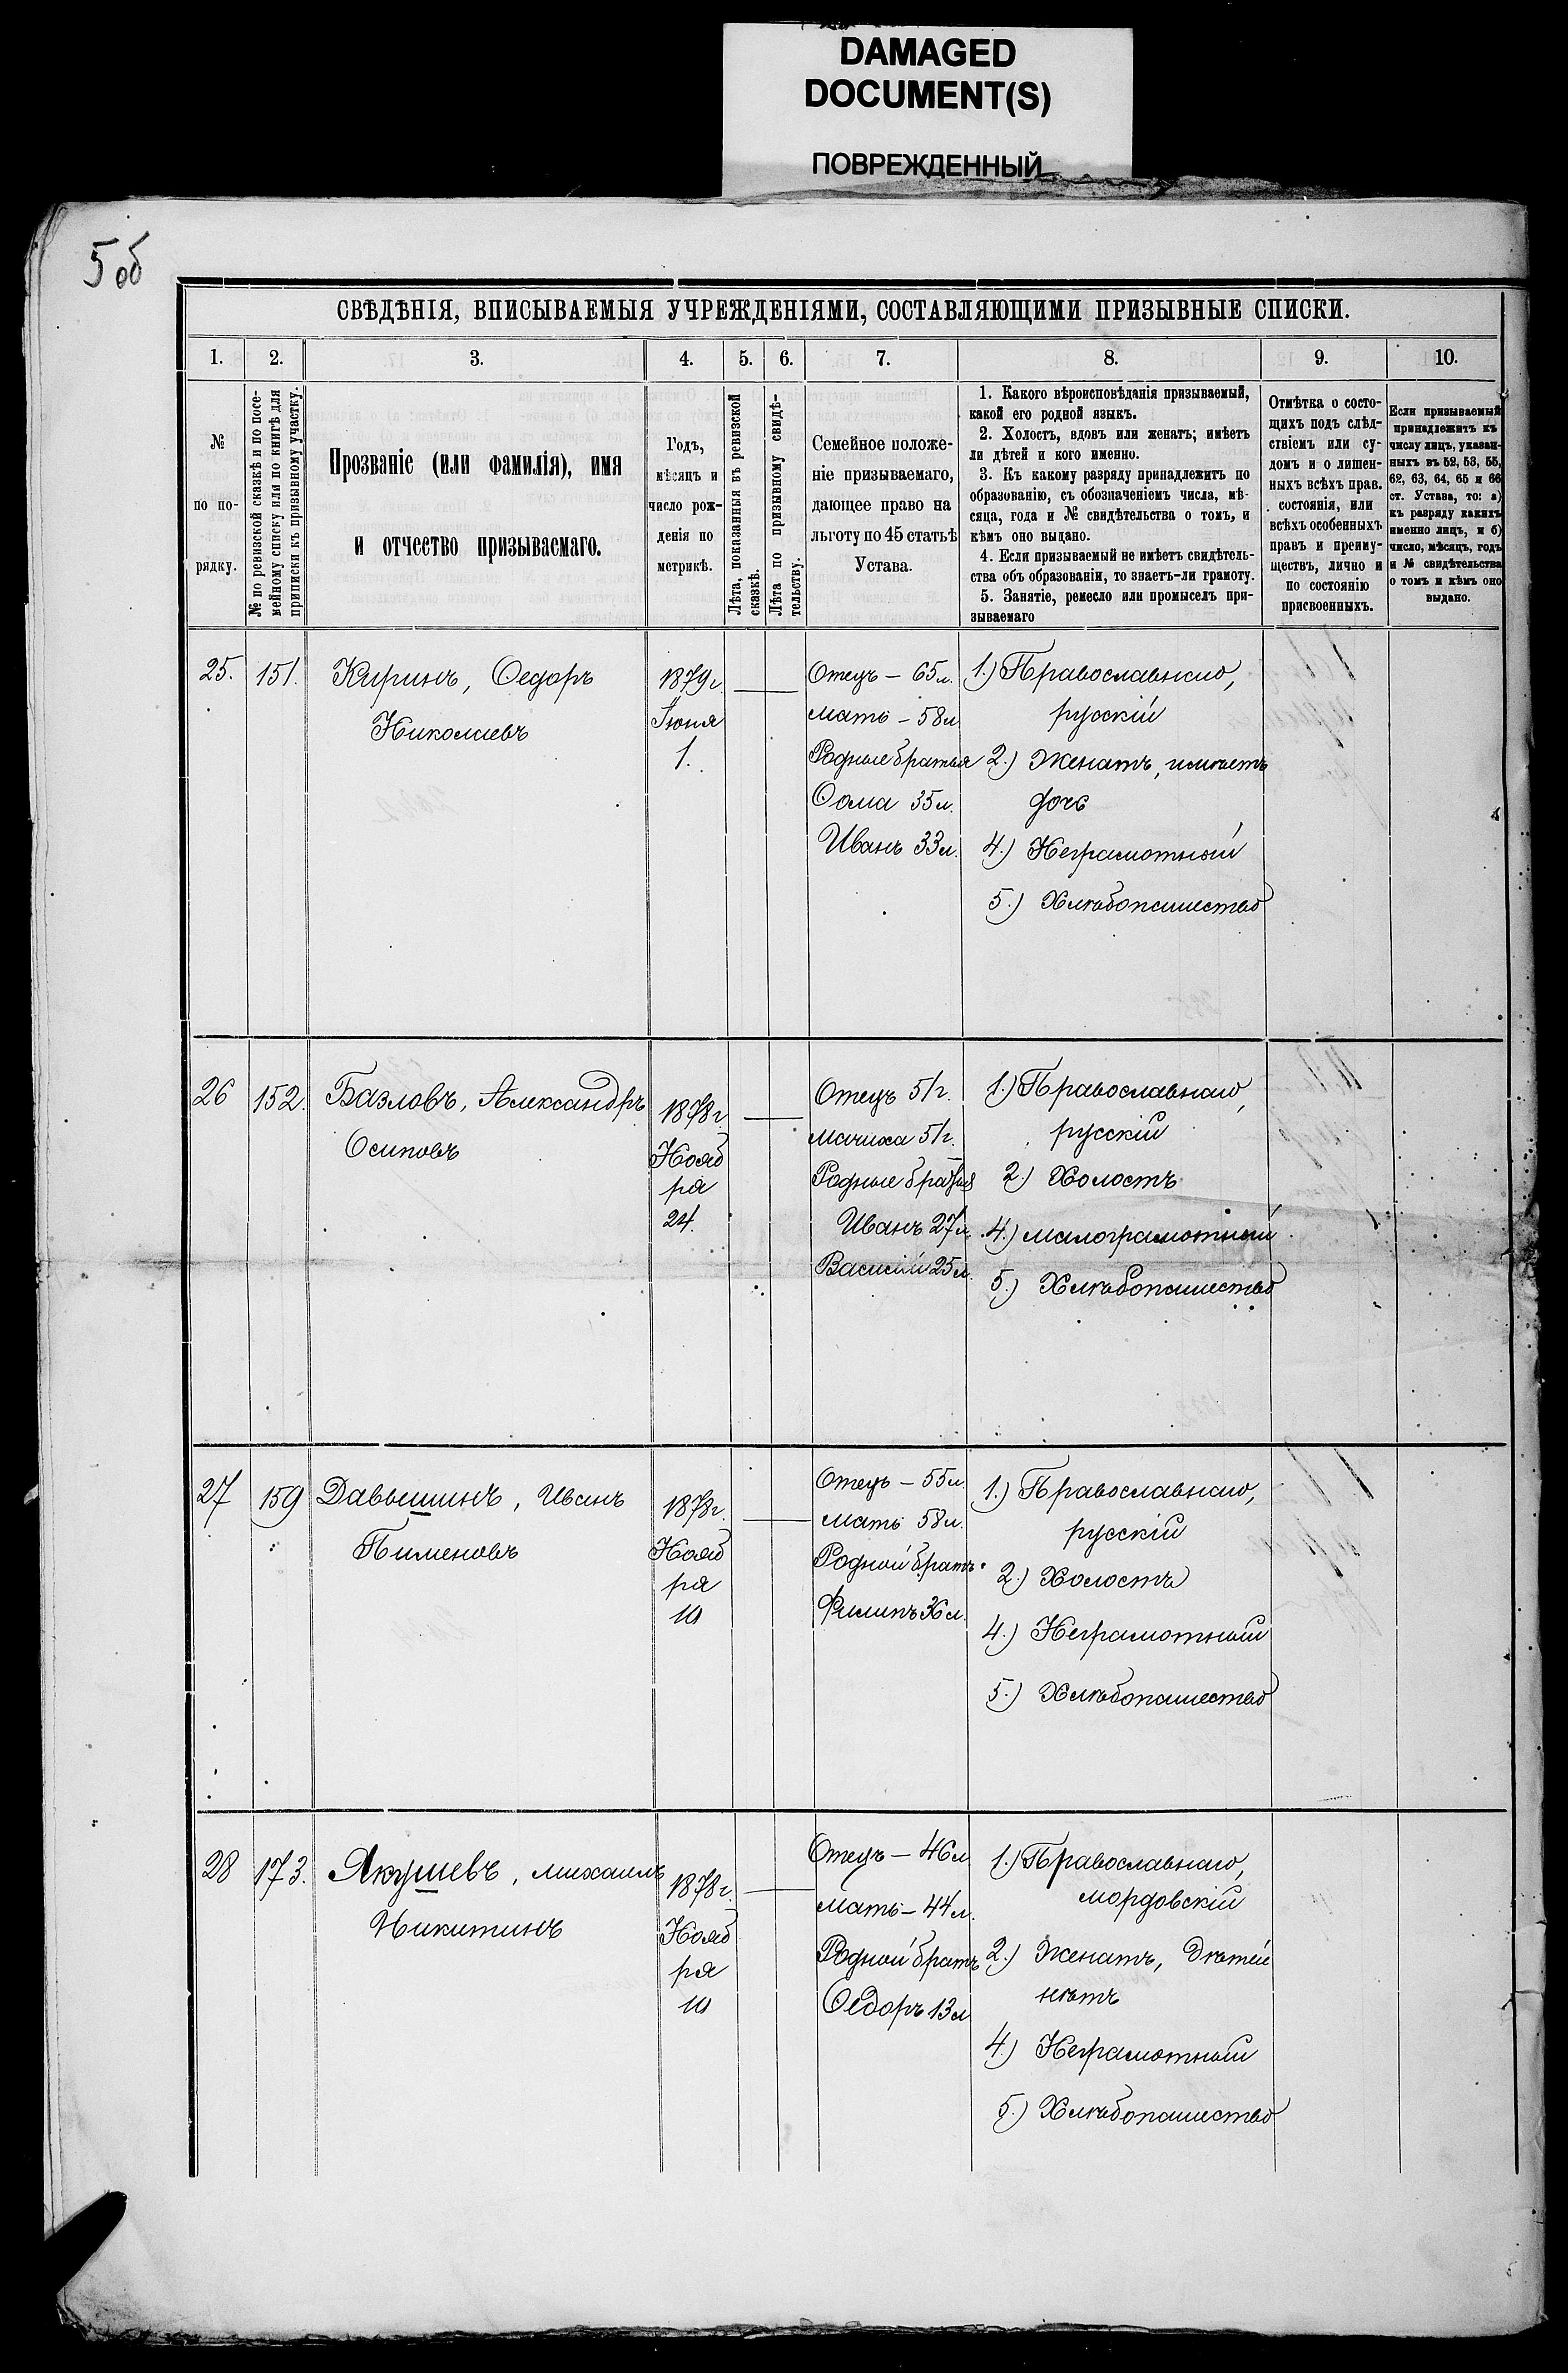 DAMAGED
DOCUMENT(S)
ПОВРЕЖДЕННЫЙ
5 об
СВѢДѢНІЯ, ВПИСЫВАЕМЫЯ УЧРЕЖДЕНІЯМИ, СОСТАВЛЯЮЩИМИ ПРИЗЫВНЫЕ СПИСКИ.
1. 2. 3. 4. 5. 6. 7. 8. 9. 10.
№
по по-
рядку.
№ по ревизской сказкѣ и по посе-
мейному списку или по книгѣ для
приписки къ призывному участку.
Прозваніе (или фамилія), имя
и отчество призываемаго.
Годъ,
мѣсяцъ и
число рож-
денія по
метрикѣ.
Лѣта, показанныя въ ревизской
сказкѣ.
Лѣта по призывному свидѣ-
тельству.
Семейное положе-
ніе призываемаго,
дающее право на
льготу по 45 статьѣ
Устава.
1. Какого вѣроисповѣданія призываемый,
какой его родной языкъ.
2. Холостъ, вдовъ или женатъ; имѣетъ
ли дѣтей и кого именно.
3. Къ какому разряду принадлежитъ по
образованію, съ обозначеніемъ числа, мѣ-
сяца, года и № свидѣтельства о томъ, и
кѣмъ оно выдано.
4. Если призываемый не имѣетъ свидѣтель-
ства объ образованіи, то знаетъ-ли грамоту.
5. Занятіе, ремесло или промыселъ при-
зываемаго
Отмѣтка о состо-
щихъ подъ слѣд-
ствіемъ или су-
домъ и о лишен-
ныхъ всѣхъ прав.
состоянія, или
всѣхъ особенныхъ
правъ и преиму-
ществъ, лично и
по состоянію
присвоенныхъ.
Если призываемый
принадлежитъ къ
числу лицъ, указан-
ныхъ въ 52, 53, 55,
62, 63, 64, 65 и 66
ст. Устава, то: а)
къ разряду какихъ
именно лицъ, и б)
число, мѣсяцъ, годъ
и № свидѣтельства
о томъ и кѣмъ оно
выдано.
25. 151.
Киринъ, Ѳедоръ
Николаевъ
1879 г.
Іюня
1.
Отецъ – 65 л.
мать – 58 л
Родные братья
Ѳома 35 л.
Иванъ 33 л.
1.) Православнаго,
русскій
2.) Женатъ, имѣетъ
дочь
4.) Неграмотный
5.) Хлѣбопашество
26 152.
Базловъ, Александръ
Осиповъ
1878 г
Нояб
ря
24.
Отецъ 51 г.
мачиха 51 г.
Родные братья
Иванъ 27 л
Василій 25 л.
1.) Православнаго,
русскій
2.) Холостъ
4.) малограмотный
5.) Хлѣбопашество
27 159
Давышинъ, Иванъ
Пименовъ
1878 г.
Нояб
ря
10
Отецъ – 55 л.
мать 58 л.
Родной братъ
Филипъ 36 л.
1.) Православнаго,
русскій
2.) Холостъ
4.) Неграмотный
5.) Хлѣбопашество
28 173.
Якушевъ, михаилъ
Никитинъ
1878 г.
Нояб
ря
10
Отецъ – 46 л
мать – 44 л.
Родной братъ
Ѳедоръ 13 л
1.) Православнаго,
мордовскій
2.) Женатъ, Дѣтей
нѣтъ
4.) Неграмотный
5.) Хлѣбопашество